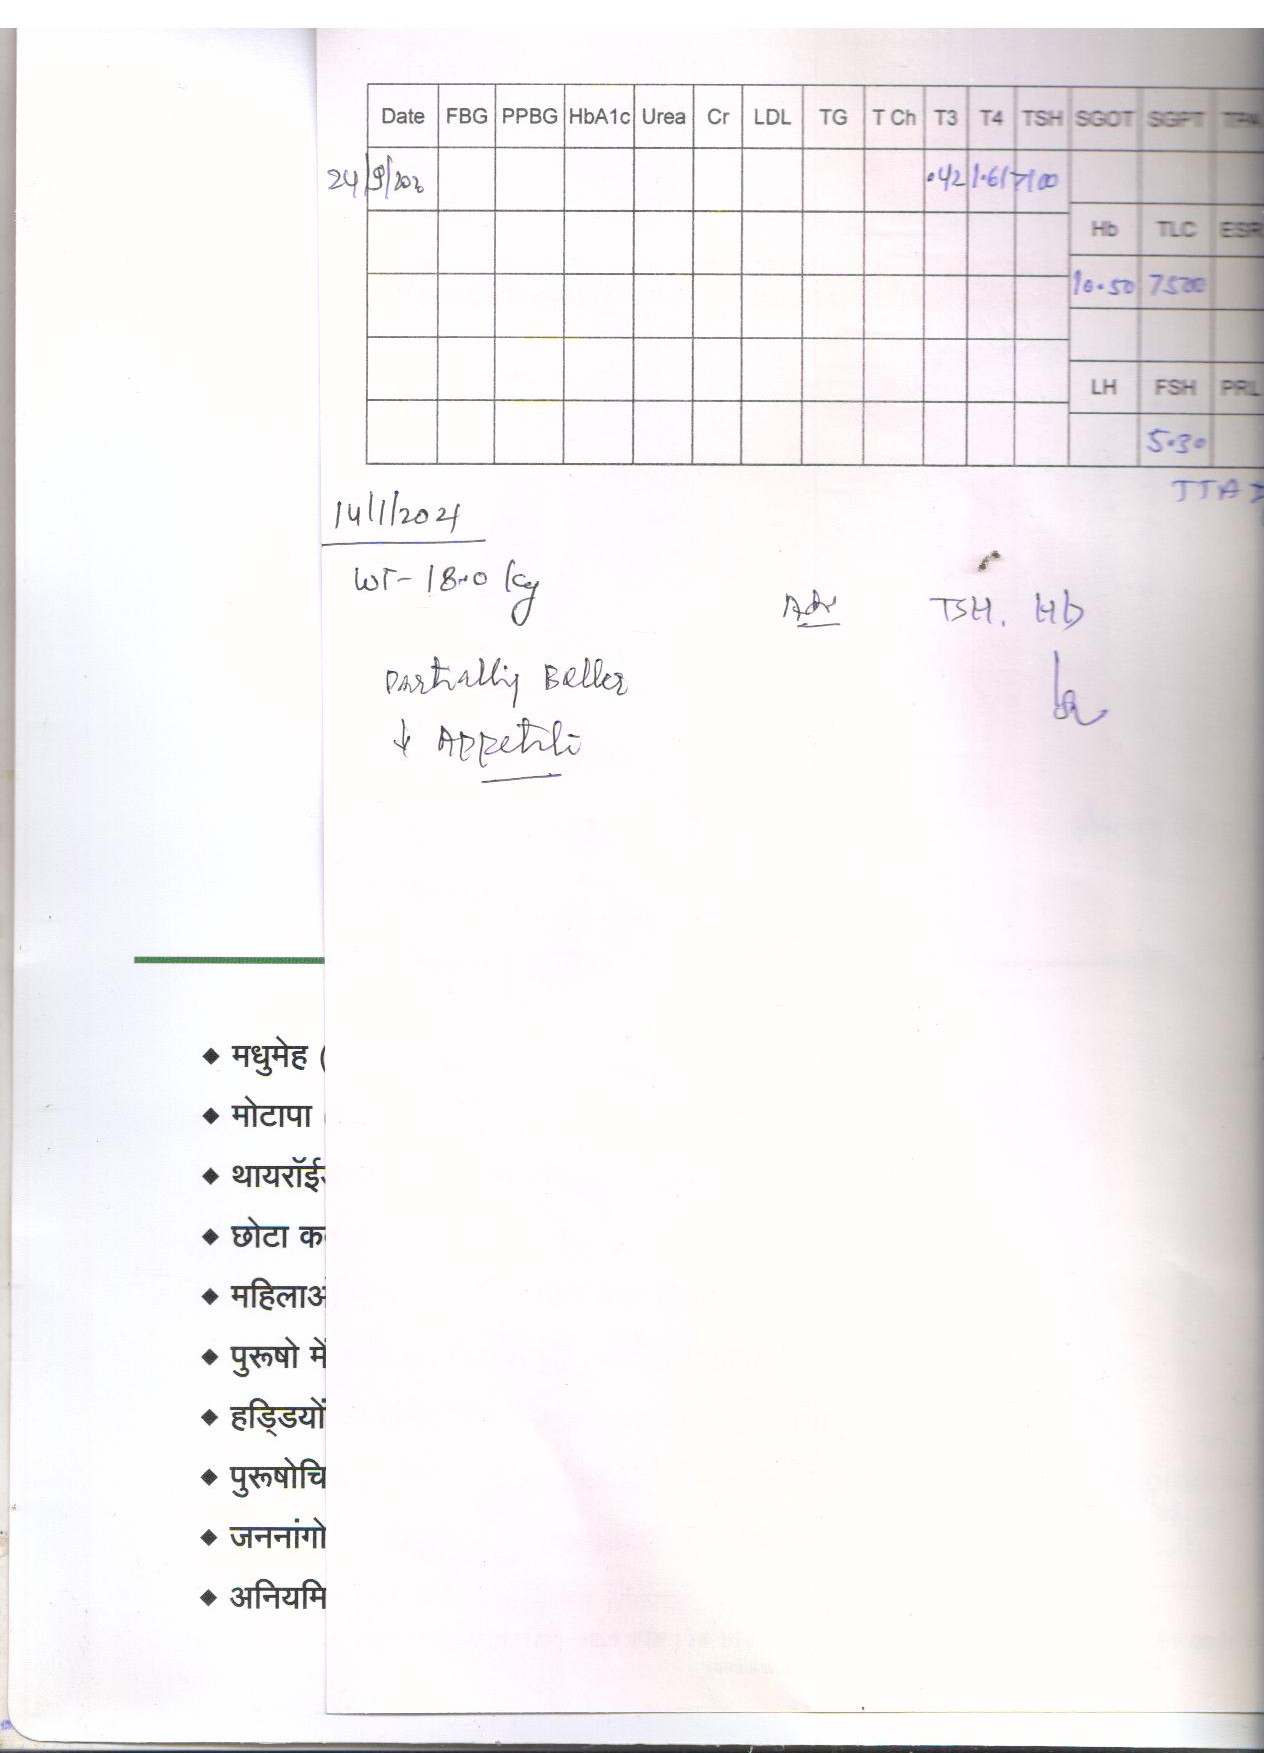 Date FBG PPBG HbA1c Urea Cr LDL TG T Ch T3 T4 TSH SGOT SGPT
24/9/2020 .42 1.61 >100
Hb TLC ESR
10.50 7500
LH FSH PRL
5.30
TTA
14/1/2021
WT- 18.0 kg
Adv TSH. Hb
Partially Better
↓ Appetite
◆ मधुमेह (
◆ मोटापा
◆ थायरॉई
◆ छोटा क
◆ महिलाओ
◆ पुरूषो में
◆ हड्डियों
◆ पुरूषोचि
◆ जननांगो
◆ अनियमि